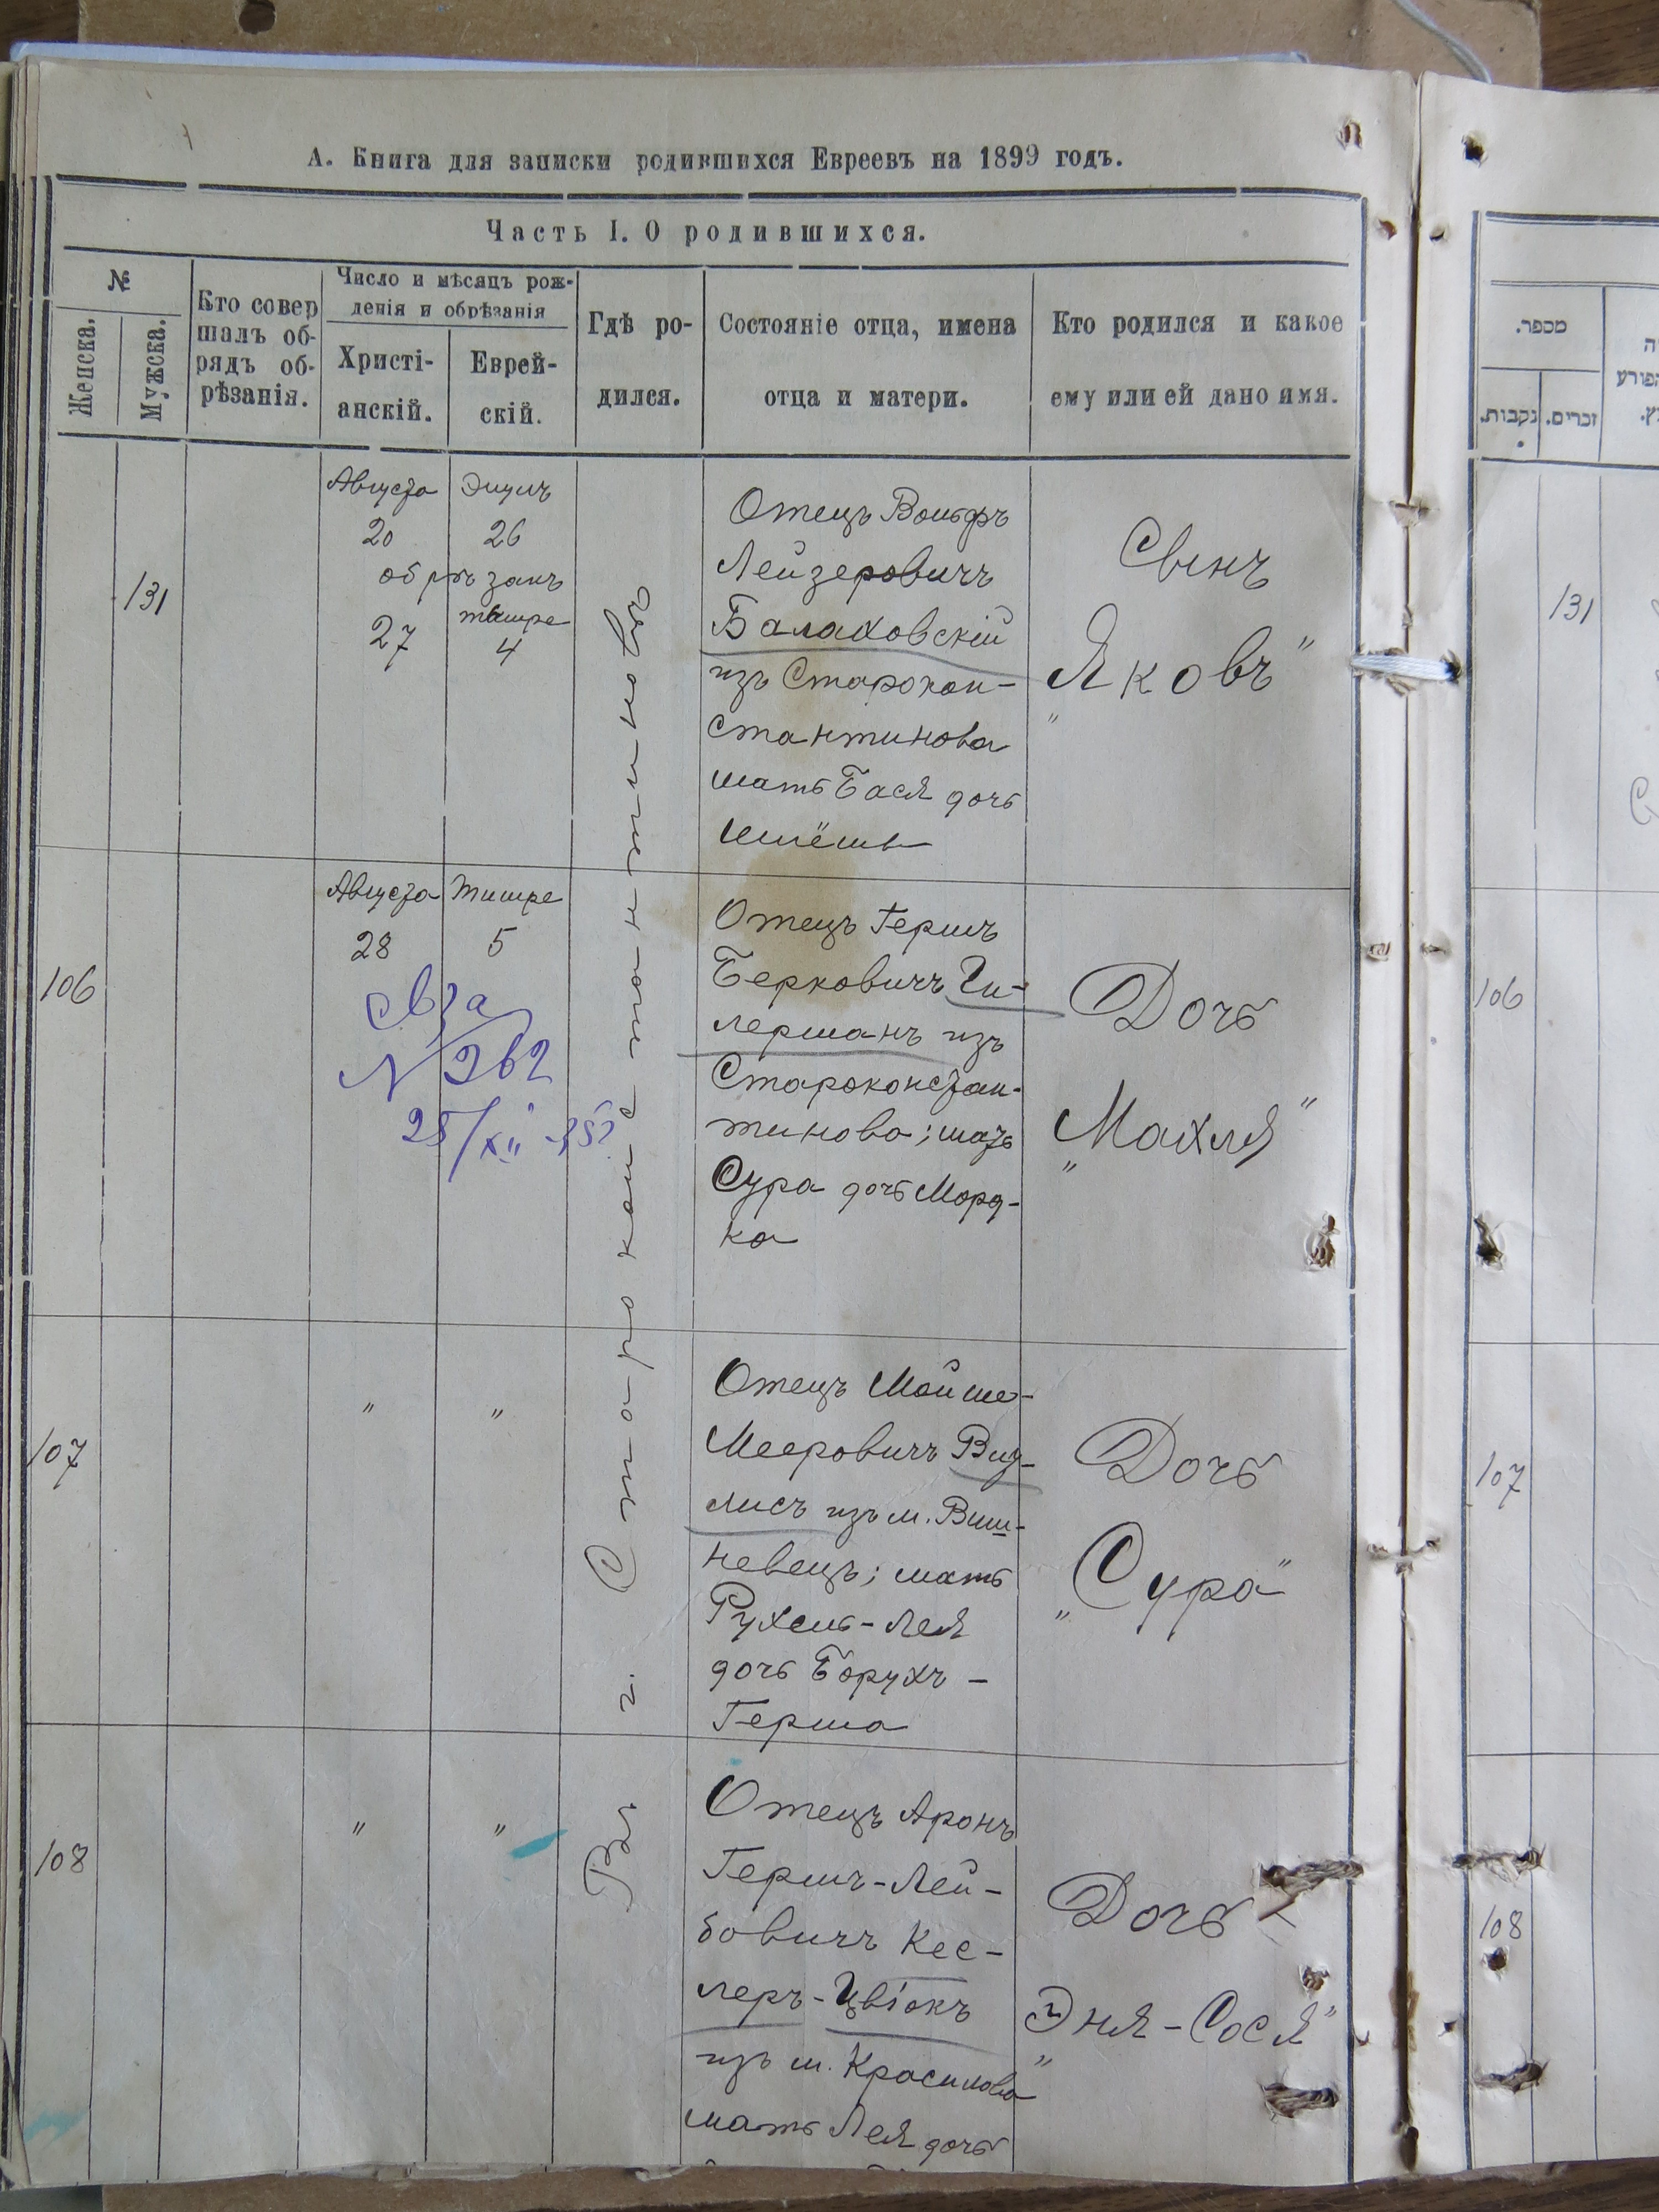 А. Книга для записки родившихся Евреевъ на 1899 годъ.
Часть I. О родившихся.
№
Женска.
Мужска.
Кто совер
шалъ об-
рядъ об-
рѣзанія.
Число и мѣсяцъ рож-
денія и обрѣзанія
Христі-
анскій.
Еврей-
скій.
Гдѣ ро-
дился.
Состояніе отца, имена
отца и матери.
Кто родился и какое
ему или ей дано имя.
Въ г. Староконстантиновъ
131
Августа
20
Элулъ
26
обрѣзанъ
27
тишре
4
Отецъ Вольфъ
Лейзеровичъ
Балаховскій
изъ Старокон-
стантинова
мать Бася дочь
Сынъ
„Яковъ“
106
Августа
28
Тишре
5
№ 262
Отецъ Гершъ
Берковичъ Ги-
лерманъ изъ
Староконстан-
тинова; мать
Сура дочь Морд-
ка
Дочь
„Махля“
107
"
"
Отецъ Мойше-
Мееровичъ
лисъ изъ м. Виш-
невецъ; мать
Рухель-Лея
дочь Борухъ-
Герша
Дочь
„Сура“
108
"
"
Отецъ Аронъ
Гершъ-Лей-
бовичъ Кес-
леръ-Цвіокъ
изъ м. Красилова
мать Лея дочь
Дочь
„Эня-Сося“
מספר.
נקבות.
זכרים.
131
106
107
108